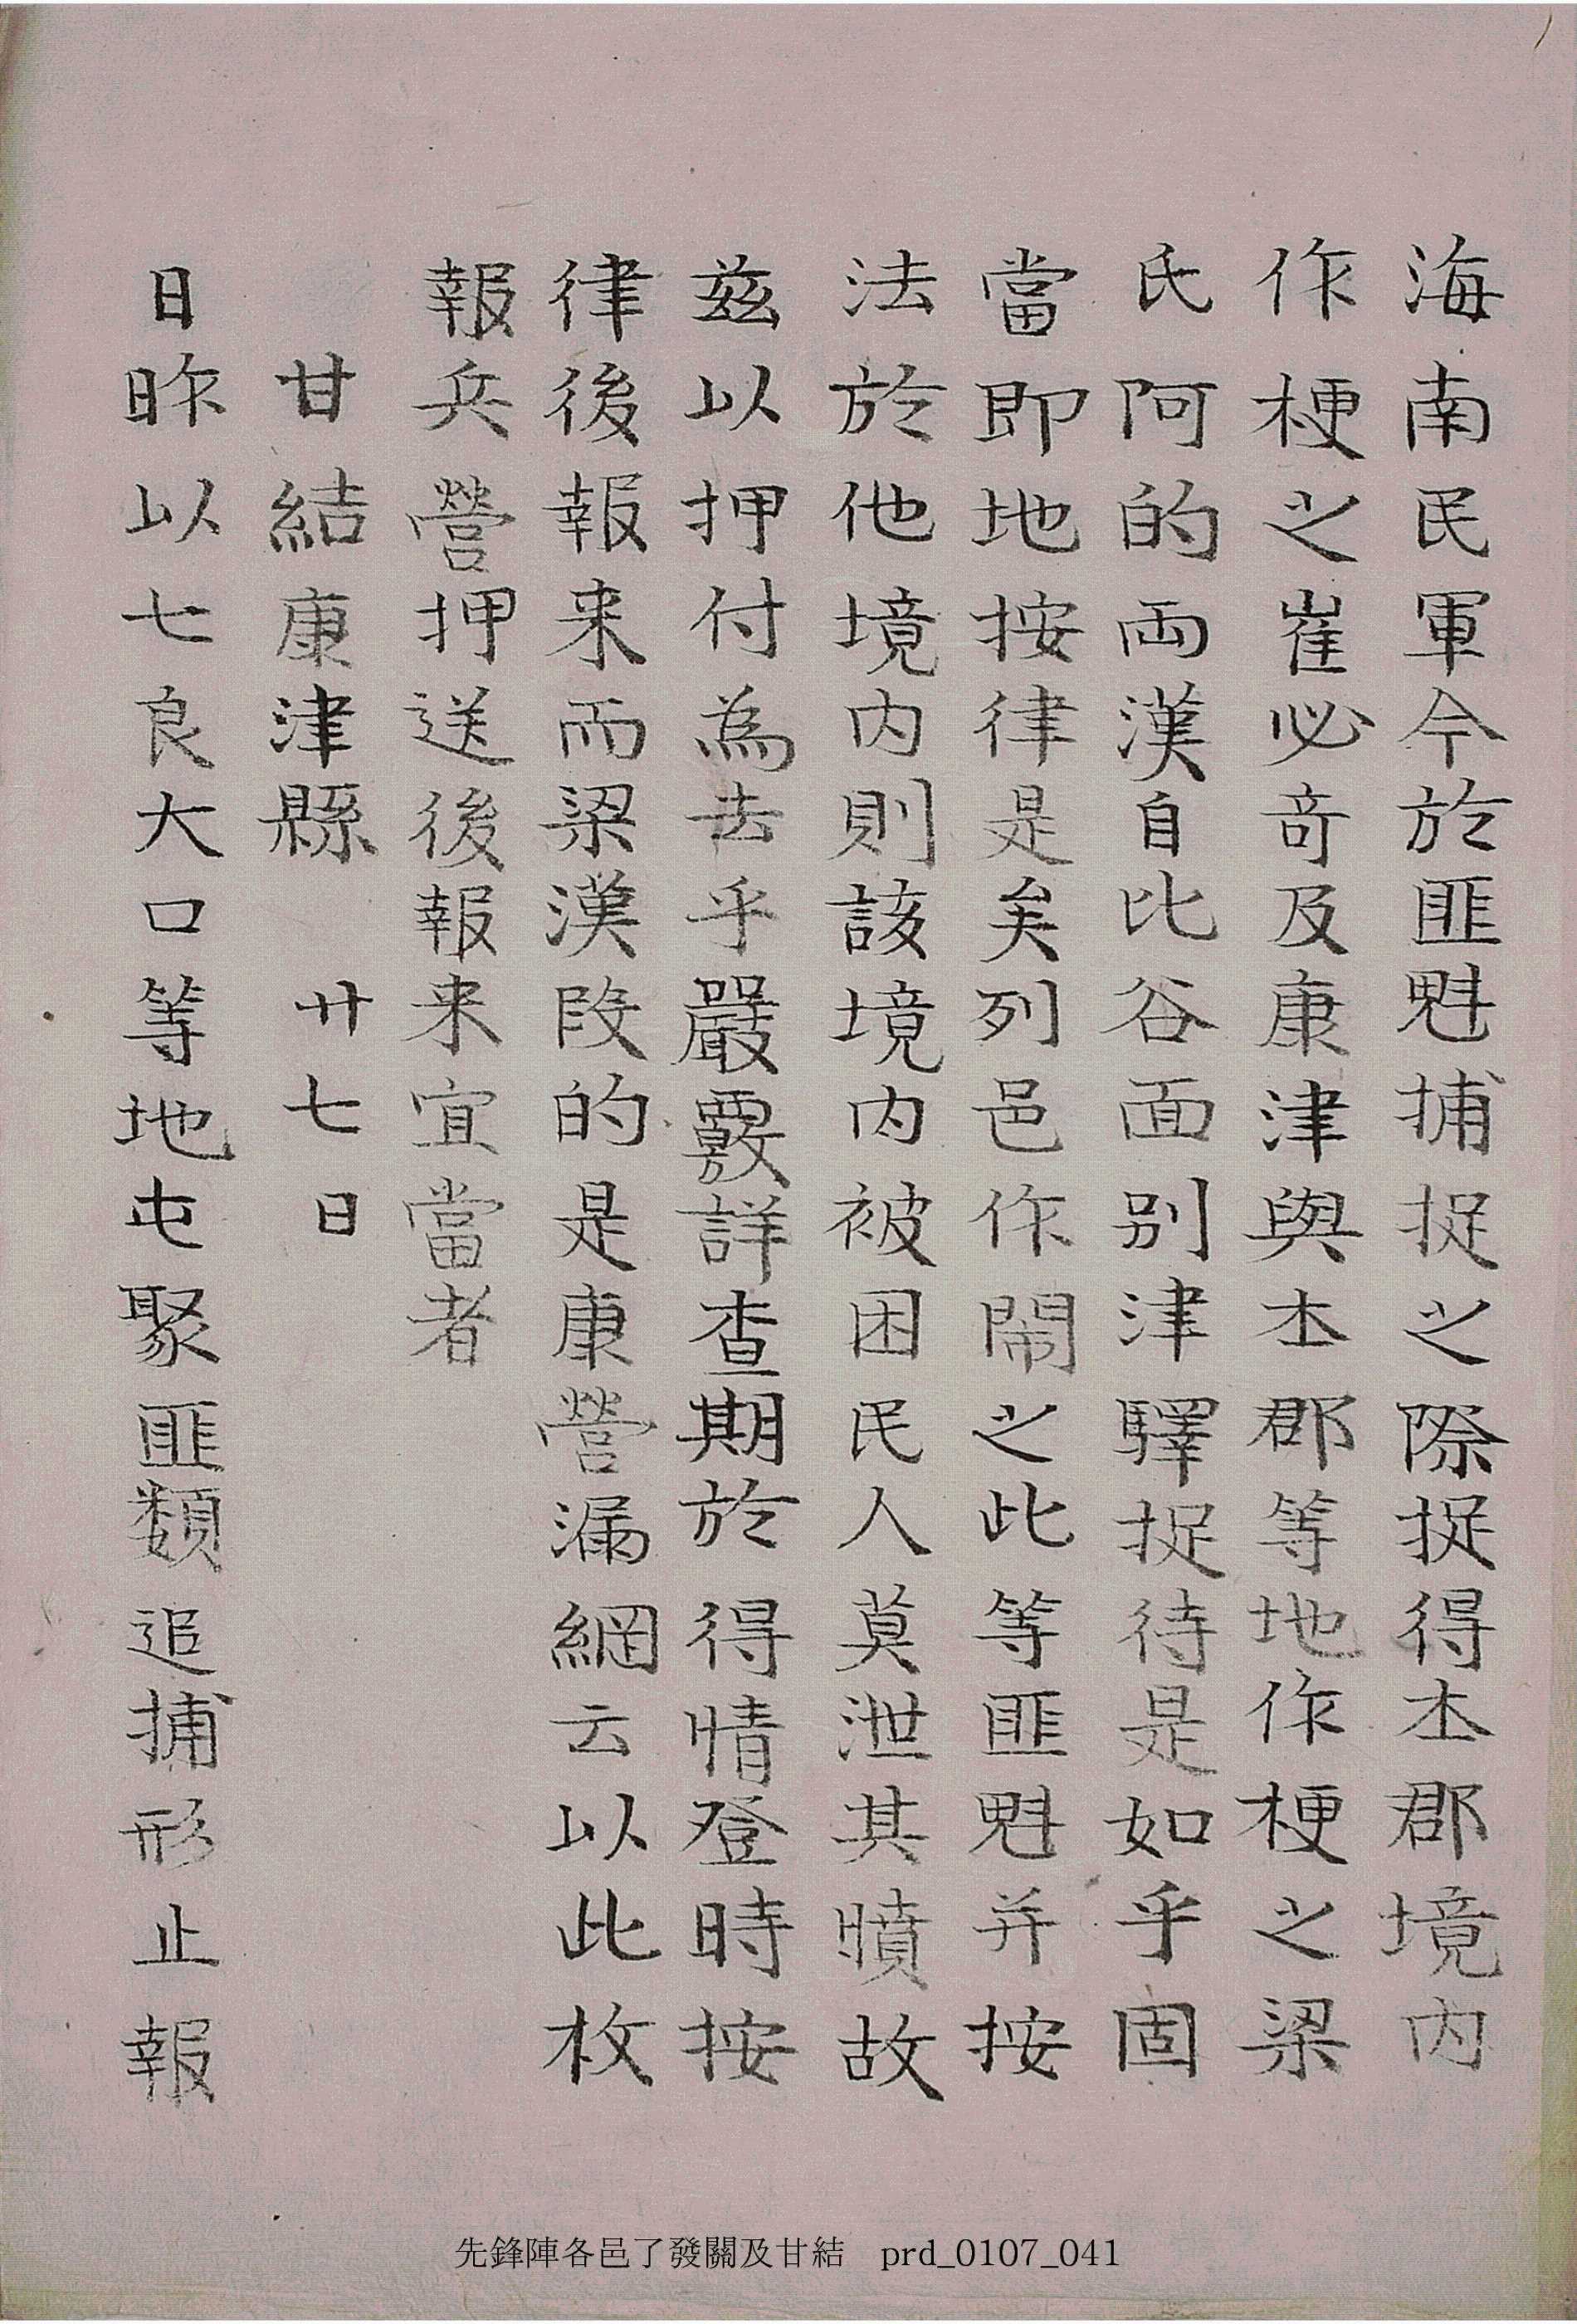 海南民軍今於匪魁捕捉之際捉得本郡境內
作梗之崔必奇及康津與本郡等地作梗之梁
氏阿的両漢自比谷面別津驛捉待是如乎固
當即地按律是矣列邑作閙之此等匪魁并按
法於他境內則該境內被困民人莫泄其憤故
玆以押付為去乎嚴覈詳查期於得情登時按
律後報来而梁漢段的是康營漏網云以此枚
報兵營押送後報来宜當者
甘結康津縣 廿七日
日昨以七良大口等地屯聚匪類追捕形止報
先鋒陣各邑了發關及甘結 prd_0107_041